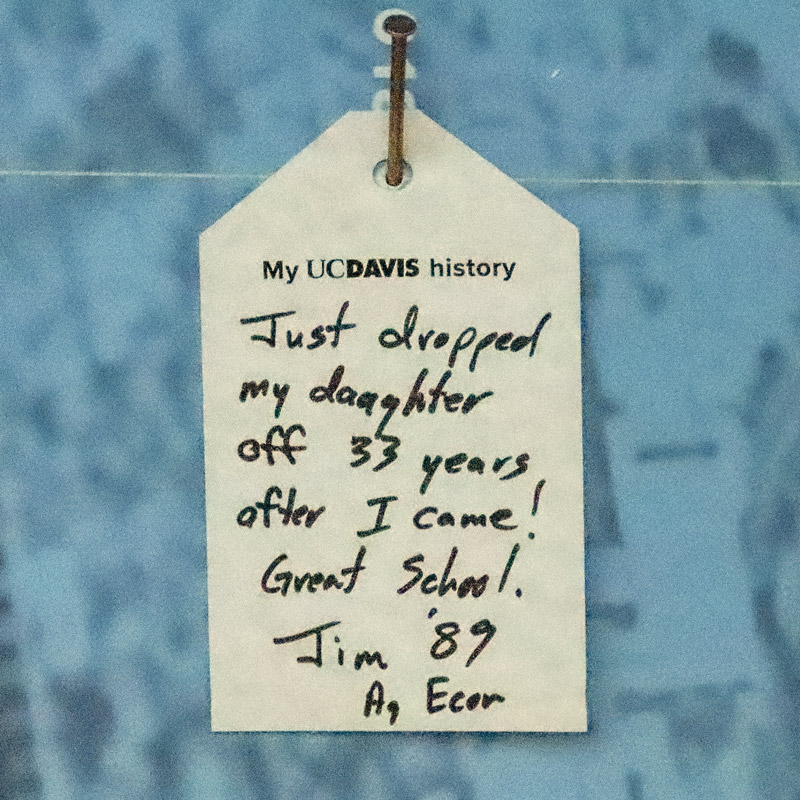 My UCDAVIS history
Just dropped
my daughter
off 33 years
after I came!
Great School.
Jim '89
Ag Econ